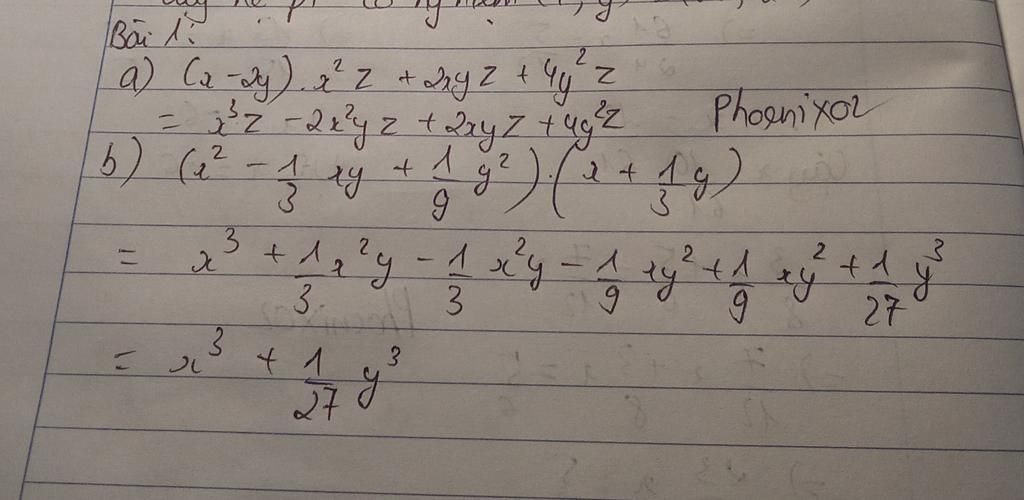 Bài 1:
a) (x - 2y) . x² z + 2xyz + 4y² z
= x³z - 2x²yz + 2xyz + 4y²z Phoenixo2
b) (x² - 1/3 xy + 1/9 y²) . (x + 1/3 y)
= x³ + 1/3 x²y - 1/3 x²y - 1/9 xy² + 1/9 xy² + 1/27 y³
= x³ + 1/27 y³